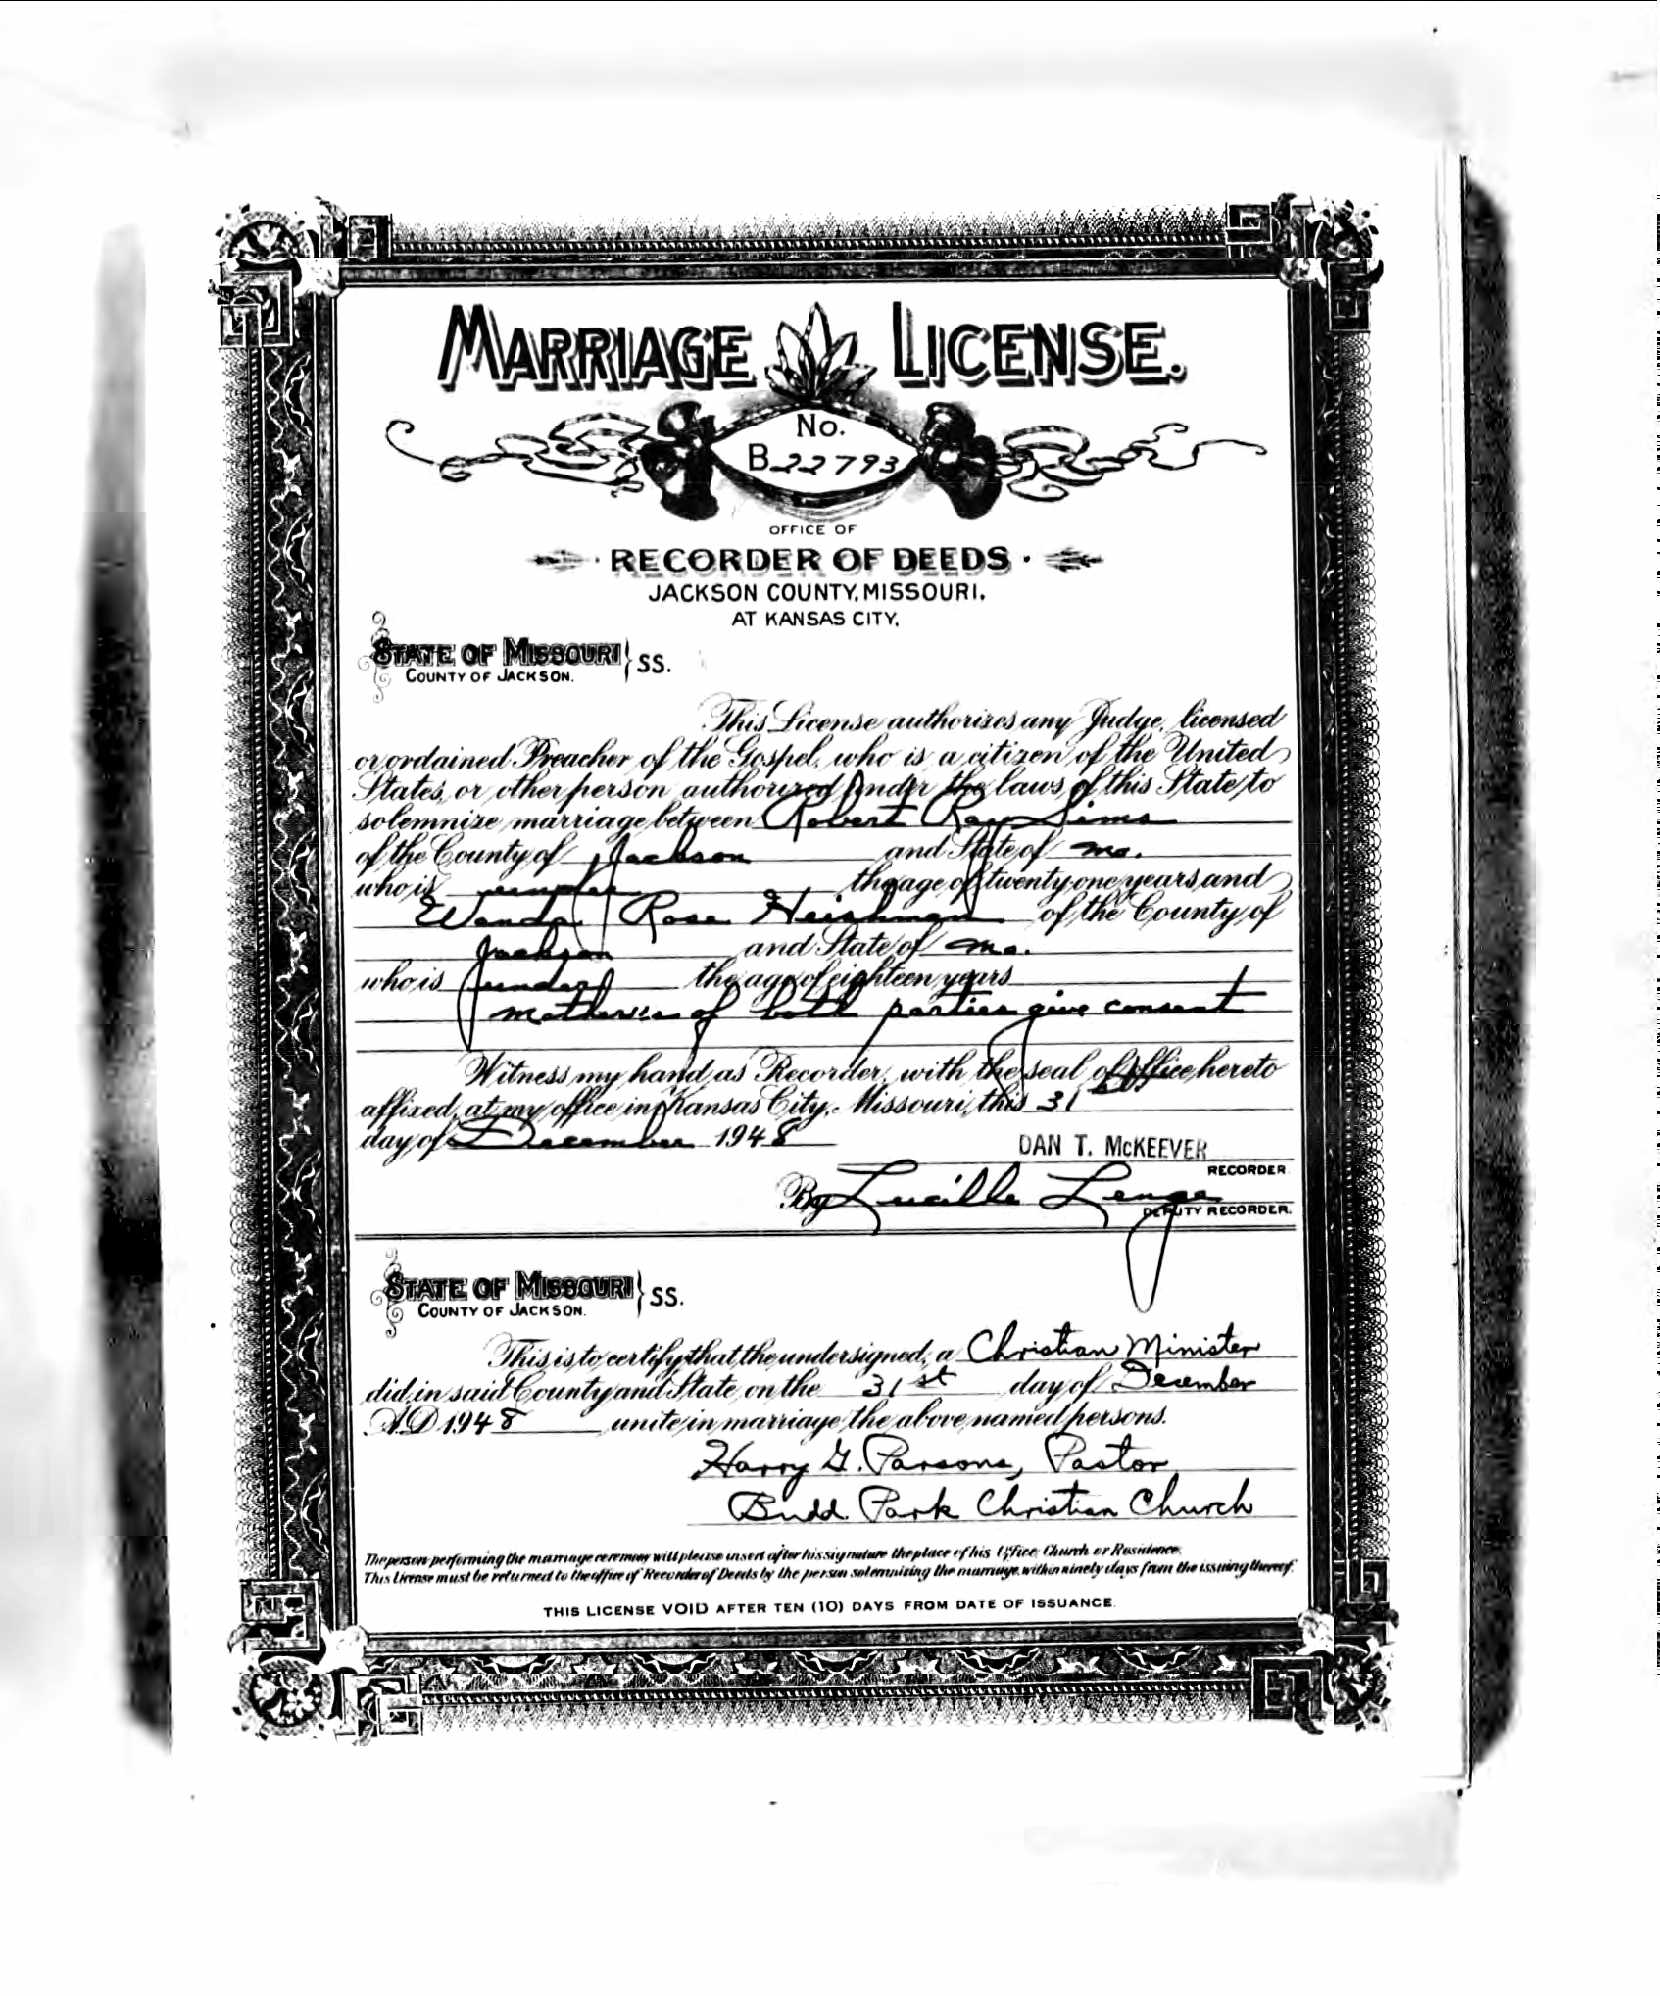 MARRIAGE LICENSE.
No.
B22793
OFFICE OF
RECORDER OF DEEDS
JACKSON COUNTY, MISSOURI.
AT KANSAS CITY.
STATE OF MISSOURI
COUNTY OF JACKSON. } SS.
This License authorizes any Judge, licensed
or ordained Preacher of the Gospel, who is a citizen of the United
States, or other person authorized under the laws of this State to
solemnize marriage between Robert Ray Sims
of the County of Jackson and State of Mo.
who is under the age of twenty one years and
Wanda Rose Heishman of the County of
Jackson and State of Mo.
who is under the age of eighteen years
mothers of both parties give consent
Witness my hand as Recorder, with the seal of office hereto
affixed, at my office in Kansas City, Missouri, this 31st
day of December 1948
DAN T. McKEEVER
RECORDER.
By Lucille Lenge
DEPUTY RECORDER.
STATE OF MISSOURI
COUNTY OF JACKSON. } SS.
This is to certify that the undersigned, a Christian Minister
did, in said County and State, on the 31st day of December
A.D. 1948 unite in marriage the above named persons.
Harry G. Parsons, Pastor
Budd Park Christian Church
The person performing the marriage ceremony will please insert after his signature the place of his Office, Church or Residence.
This License must be returned to the office of Recorder of Deeds by the person solemnizing the marriage, within ninety days from the issuing thereof.
THIS LICENSE VOID AFTER TEN (10) DAYS FROM DATE OF ISSUANCE.